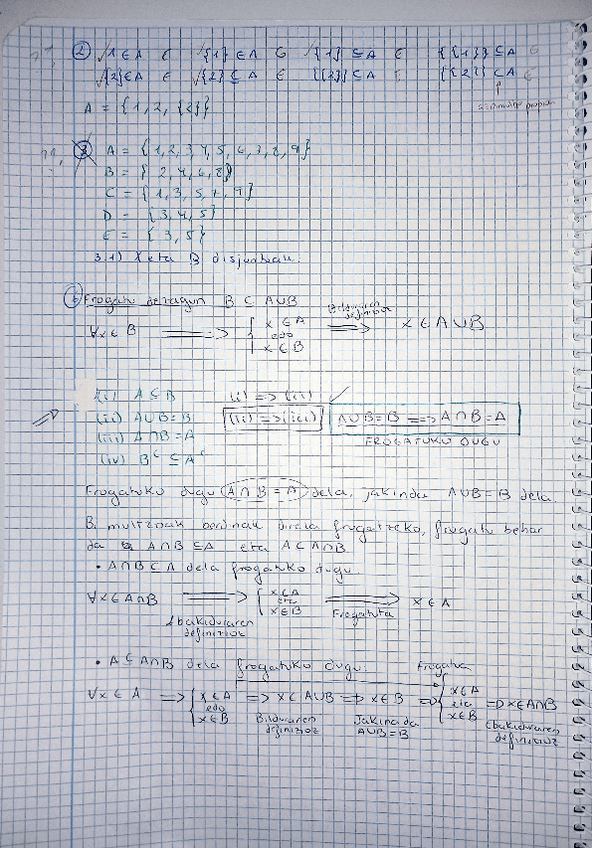 ② 1 ∈ A E {1} ∈ A G {1} ⊆ A E {{1}} ⊆ A E
{2} ∈ A E {2} ⊆ A E {{2}} ⊆ A E {{2}} ⊂ A E
A = {1, 2, {2}}
③ A = {1, 2, 3, 4, 5, 6, 7, 8, 9}
B = {2, 4, 6, 8}
C = {1, 3, 5, 7, 9}
D = {3, 4, 5}
E = {3, 5}
3.1) X eta B disjuntuak.
⑥ Frogatu dezagun B ⊂ A∪B
∀x ∈ B ⟹ { x ∈ A edo x ∈ B ⟹ Bilduraren definizioz x ∈ A∪B
(i) A ⊆ B (i) => (ii) ✓
(ii) A∪B = B (ii) => (iii) A∪B = B ==> A∩B = A
(iii) A∩B = A FROGATUKO DUGU
(iv) Bᶜ ⊆ Aᶜ
Frogatuko dugu A∩B = A dela, jakinda A∪B = B dela.
Bi multzoak berdinak direla frogatzeko, frogatu behar
da A∩B ⊆ A eta A ⊂ A∩B.
• A∩B ⊆ A dela frogatuko dugu.
∀x ∈ A∩B ⟹ Ebakiduraren definizioz { x ∈ A eta x ∈ B ⟹ Frogatuta x ∈ A
• A ⊆ A∩B dela frogatuko dugu. Frogatua
∀x ∈ A => { x ∈ A edo x ∈ B => x ∈ A∪B => x ∈ B => { x ∈ A eta x ∈ B => x ∈ A∩B
Bilduraren definizioz Jakina da A∪B = B Ebakiduraren definizioz